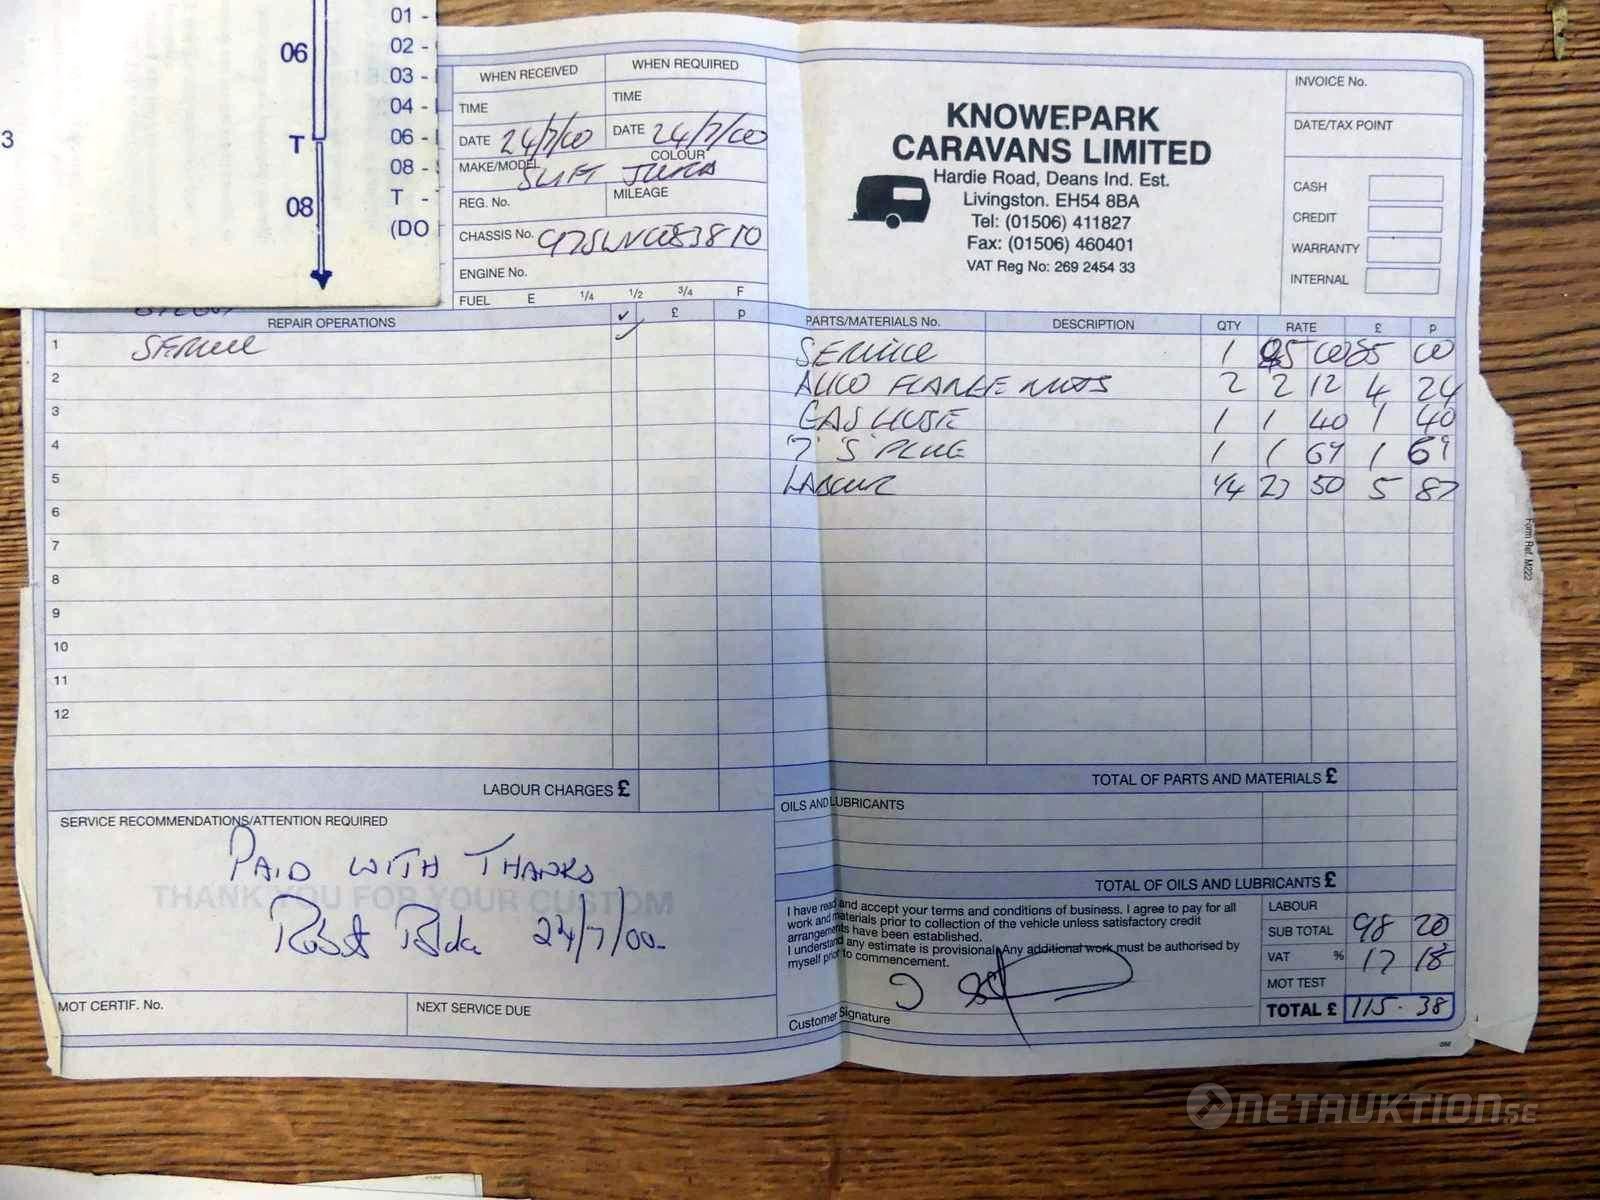 01 -
02 -
03 -
04 -
06 -
08 -
T -
(DO
06
T
08
3
WHEN RECEIVED WHEN REQUIRED
TIME TIME
DATE 24/7/00 DATE 24/7/00
MAKE/MODEL COLOUR
REG. No. MILEAGE
CHASSIS No.
ENGINE No.
FUEL E 1/4 1/2 3/4 F
KNOWEPARK
CARAVANS LIMITED
Hardie Road, Deans Ind. Est.
Livingston. EH54 8BA
Tel: (01506) 411827
Fax: (01506) 460401
VAT Reg No: 269 2454 33
INVOICE No.
DATE/TAX POINT
CASH
CREDIT
WARRANTY
INTERNAL
REPAIR OPERATIONS ✓ £ p
1 SERVICE ✓
2
3
4
5
6
7
8
9
10
11
12
LABOUR CHARGES £
PARTS/MATERIALS No. DESCRIPTION QTY RATE £ p
SERVICE 1 85 00 85 00
FLANGE NUTS 2 2 12 4 24
GAS HOSE 1 1 40 1 40
7 'S' PLUG 1 1 69 1 69
LABOUR 1/4 23 50 5 87
TOTAL OF PARTS AND MATERIALS £
OILS AND LUBRICANTS
TOTAL OF OILS AND LUBRICANTS £
SERVICE RECOMMENDATIONS/ATTENTION REQUIRED
PAID WITH THANKS
THANK YOU FOR YOUR CUSTOM
24/7/00
MOT CERTIF. No. NEXT SERVICE DUE
I have read and accept your terms and conditions of business. I agree to pay for all
work and materials prior to collection of the vehicle unless satisfactory credit
arrangements have been established.
I understand any estimate is provisional. Any additional work must be authorised by
myself prior to commencement.
Customer Signature
LABOUR
SUB TOTAL 98 20
VAT % 17 18
MOT TEST
TOTAL £ 115 - 38
Form Ref. M222
NETAUKTION.SE